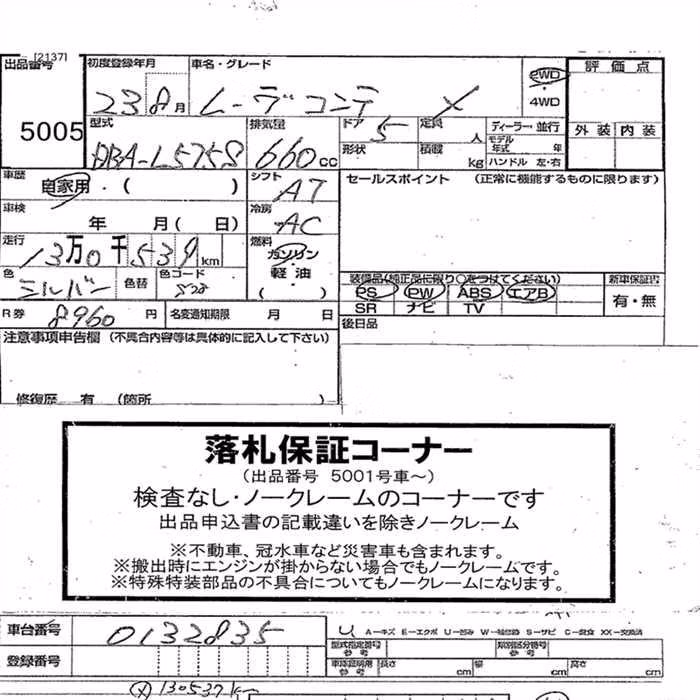 [2137]
出品番号 初度登録年月 車名・グレード 2WD 評価点
23 8月 ムーヴコンテ X 4WD
5005 型式 排気量 ドア 5 定員 人 ディーラー・並行 外装 内装
DBA-L575S 660cc 形状 積載 kg モデル年式 年 ハンドル 左・右
車歴 自家用・( ) シフト AT セールスポイント (正常に機能するものに限ります)
車検 年 月( 日) 冷房 AC
走行 13万0千539km 燃料 ガソリン
色 シルバー 色替 色コード S28 軽油 ( ) 装備品(純正品に限り〇をつけてください) 新車保証書
PS PW ABS エアB 有・無
R券 8960円 名変通知期限 月 日 SR ナビ TV
注意事項申告欄 (不具合内容等は具体的に記入して下さい) 後日品
修復歴 有 (箇所 )
落札保証コーナー
(出品番号 5001号車〜)
検査なし・ノークレームのコーナーです
出品申込書の記載違いを除きノークレーム
※不動車、冠水車など災害車も含まれます。
※搬出時にエンジンが掛からない場合でもノークレームです。
※特殊特装部品の不具合についてもノークレームになります。
車台番号 0132835 U A-キズ E-エクボ U-凹み W-補修跡 S-サビ C-腐食 XX-交換済
型式指定番号 参考 類別区分番号 参考
登録番号 車庫証明用 参考 長さ cm 幅 cm 高さ cm
130539km